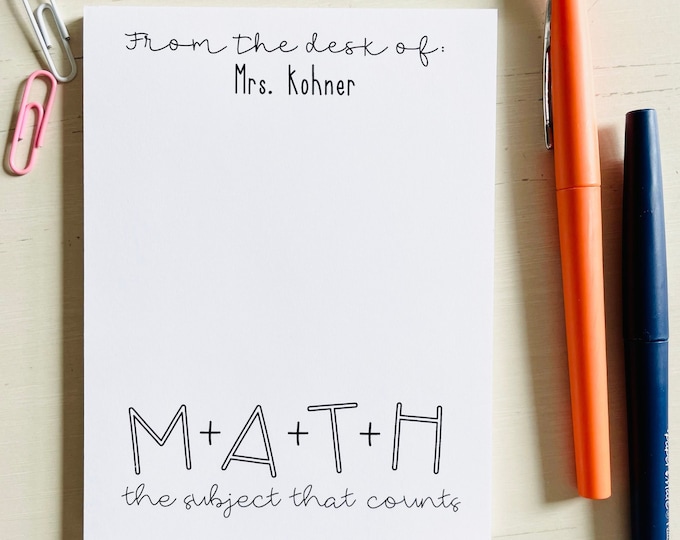 From the desk of:
Mrs. Kohner
M+A+T+H
the subject that counts